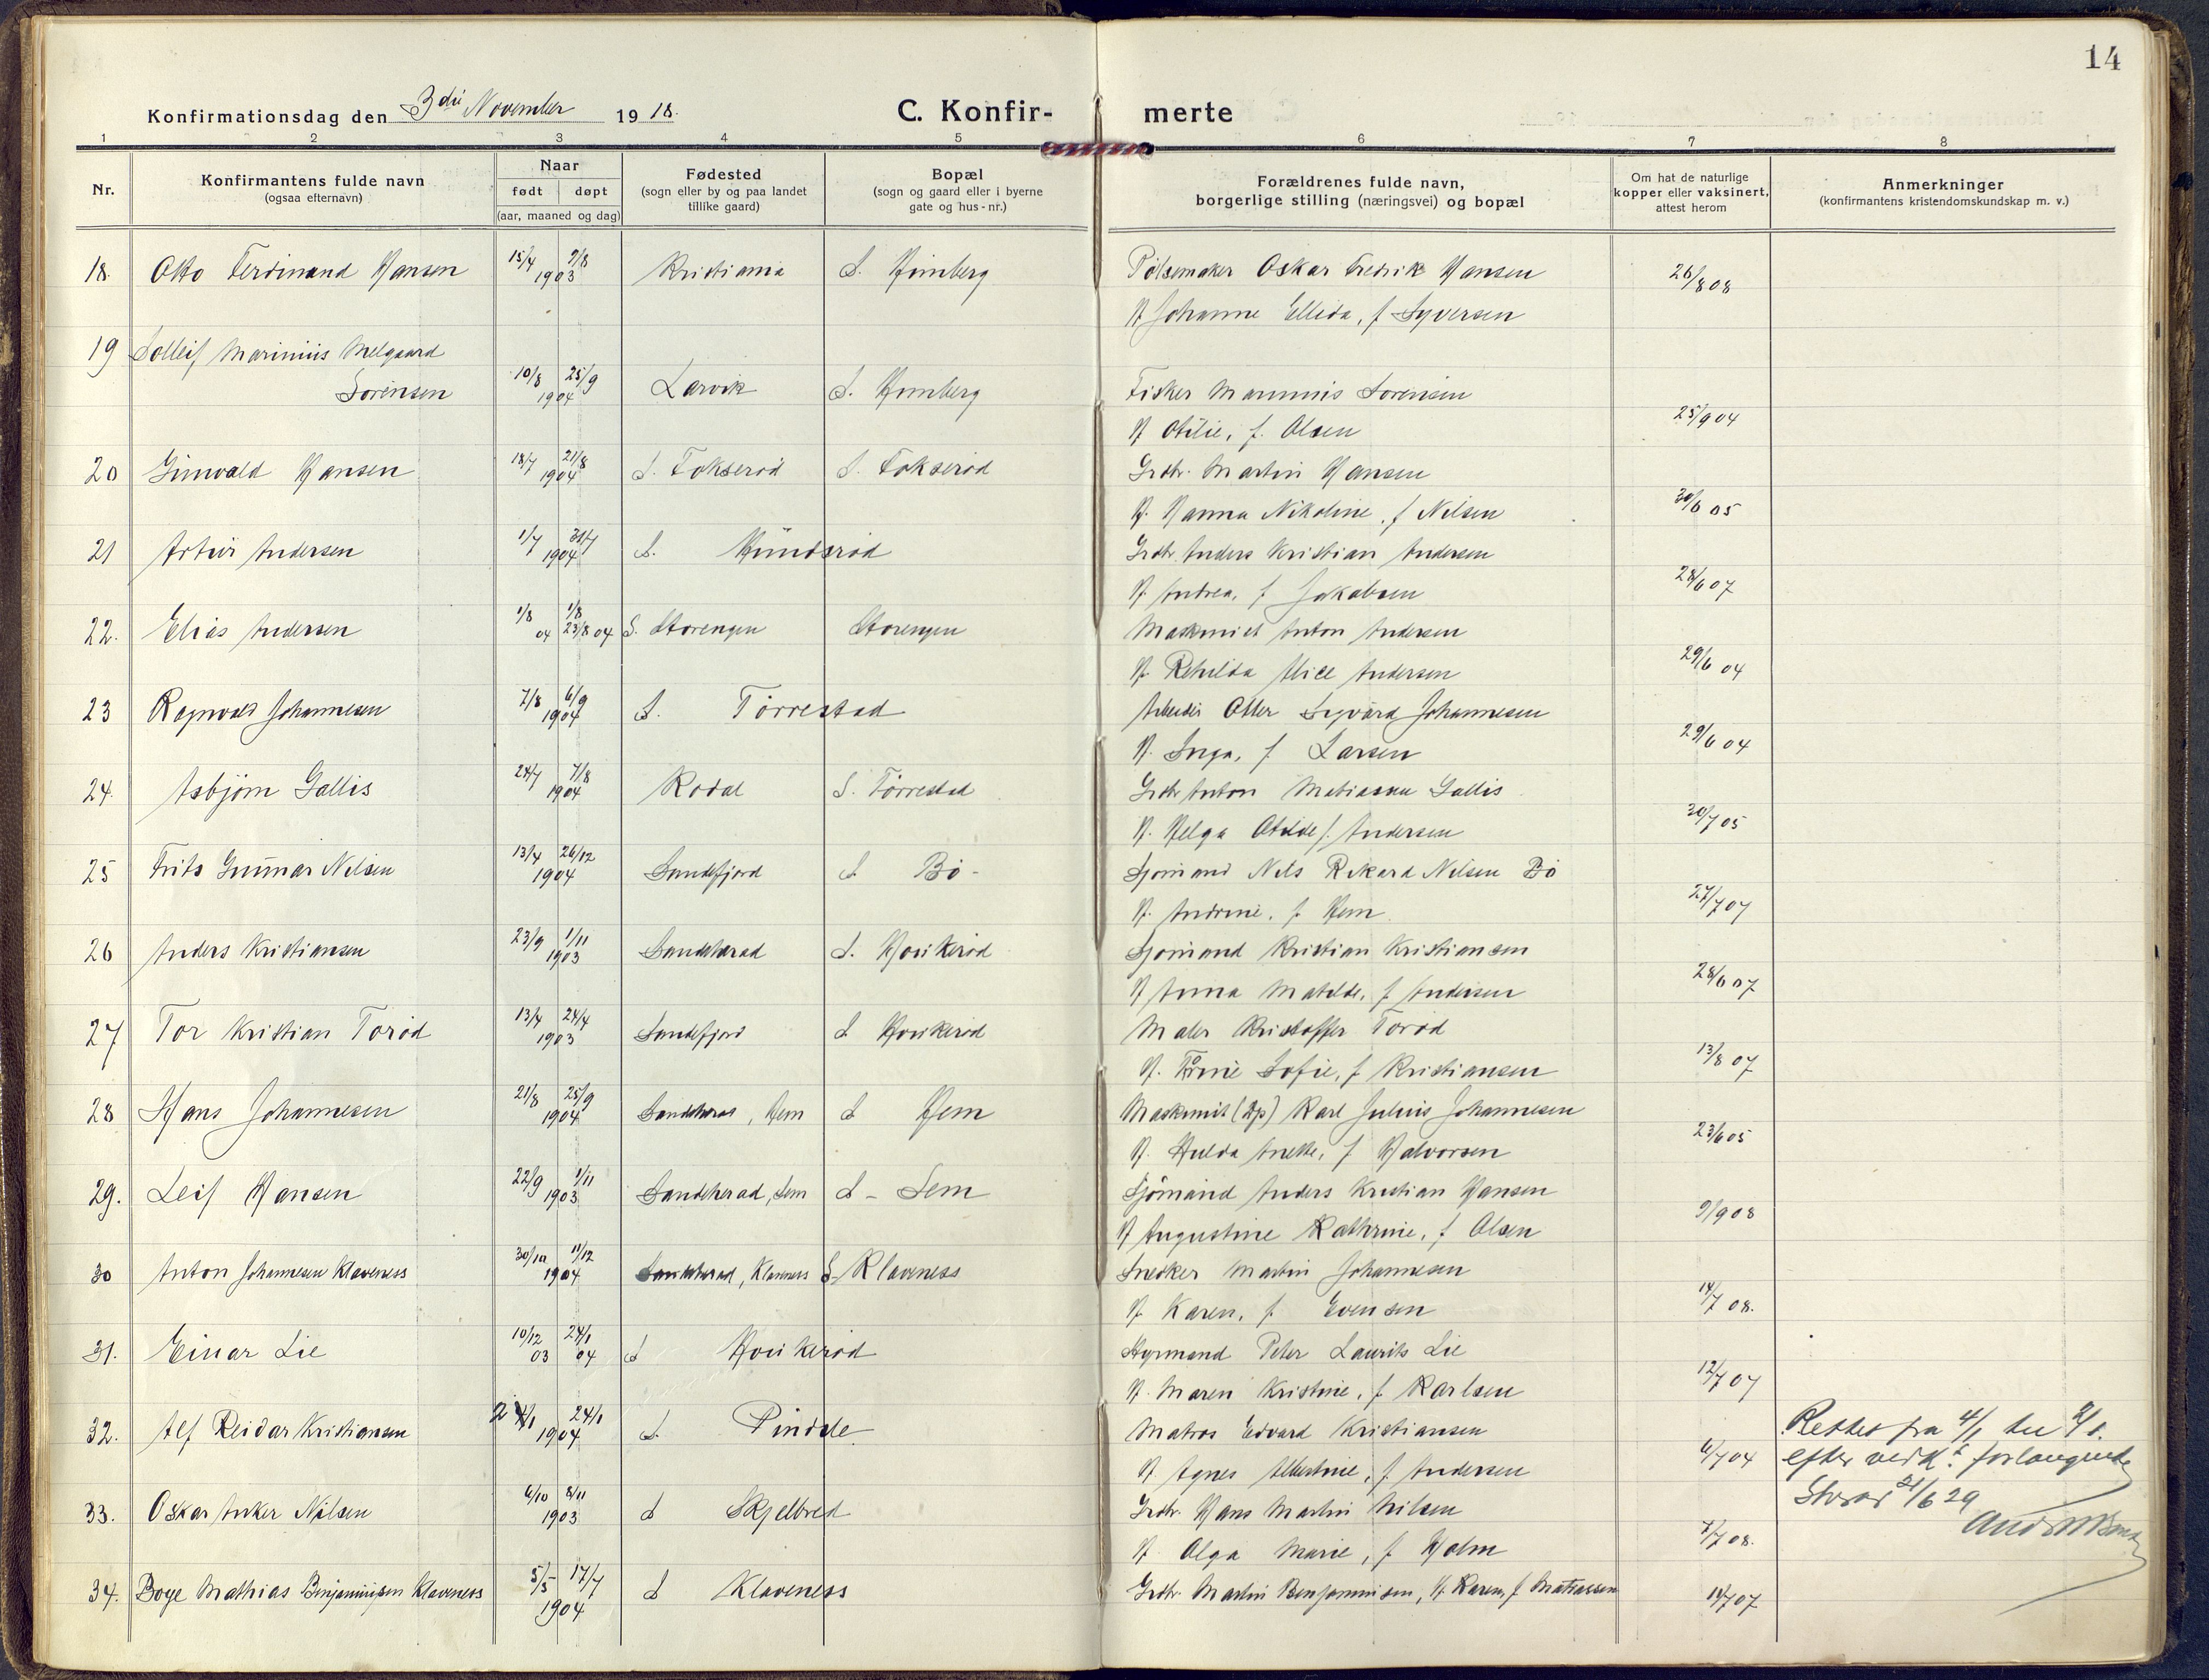 14
Konfirmationsdag den 3die November 1918.
C. Konfir- merte
1 2 3 4 5 6 7 8
Nr.
Konfirmantens fulde navn
(ogsaa efternavn)
Naar
født døpt
(aar, maaned og dag)
Fødested
(sogn eller by og paa landet
tillike gaard)
Bopæl
(sogn og gaard eller i byerne
gate og hus-nr.)
Forældrenes fulde navn,
borgerlige stilling (næringsvei) og bopæl
Om hat de naturlige
kopper eller vaksinert,
attest herom
Anmerkninger
(konfirmantens kristendomskundskap m. v.)
18. Otto Ferdinand Hansen 15/4 9/8 1903 Kristiania S. Himberg Pølsemaker Oskar Fredrik Hansen 26/8 08
H Johanne Ellida, f Syversen
19 Solleif Marinius Melgaard
Sørensen 10/8 25/9 1904 Larvik S. Himberg Fisker Marinius Sørensen
H Otilie, f. Olsen 25/9 04
20 Gunvald Hansen 18/7 21/8 1904 S. Fokserød S. Fokserød Grdbr. Martin Hansen
H. Hanna Nikoline, f Nilsen 30/6 05
21 Artur Andersen 1/7 31/7 1904 S. Hundsrød Grdbr. Anders Kristian Andersen
H. Andrea, f Jakobsen 28/6 07
22. Elias Andersen 1/8 04 1/8 23/8 04 S. Storengen Storengen Maskinist Anton Andersen
H. Alice Andersen 29/6 04
23 Ragnvald Johannesen 7/8 6/9 1904 S. Tørrestad Arbeider Otter Sigvard Johannesen
H. Inga, f Larsen 29/6 04
24. Asbjørn Gallis 24/7 7/8 1904 S. Tørrestad Grdbr Anton Gallis
H. Helga f. Andersen 30/7 05
25 Frits Gunnar Nilsen 13/4 26/12 1904 Sandefjord S Bø - Sjømand Nils Rikard Nilsen Bø
H. Andrine, f. Hem 27/7 07
26 Anders Kristiansen 23/9 1/11 1903 Sandeherad S. Hovikerød Sjømand Kristian Kristiansen
H Anna Matilde, f Andersen 28/6 07
27 Tor Kristian Torød 13/4 24/4 1903 Sandefjord S Hovikerød Maler Kristoffer Torød
H. Sofie, f Kristiansen 13/8 07
28 Hans Johannesen 21/8 25/9 1904 Sandeherad, Hem S Hem Maskinist (Dp) Karl Julius Johannesen
H. Hulda Anette, f Halvorsen 23/6 05
29. Leif Hansen 22/9 1/11 1903 Sandeherad, Sem S - Sem Sjømand Anders Kristian Hansen
H Augustine Kathrine, f Olsen 9/9 08
30 Anton Johannesen Klaveness 30/10 11/12 1904 Sandeherad, Klavness S - Klaveness Snedker Martin Johannesen
H. Karen, f. Evensen 14/7 08.
31. Einar Lie 10/12 03 24/1 04 S Hovikerød Styrmand Peter Laurits Lie
H. Maren Kristine, f. Karlsen 12/7 07
32. Alf Reidar Kristiansen 2/1 24/1 1904 S. Pindsle Matros Edvard Kristiansen
H Agnes Albertine, f. Andersen 6/7 04
Rettet fra 4/1 til 2/1.
efter forlangende
21/6 29
33. Oskar Anker Nilsen 6/10 8/11 1903 S Skjelbred Grdbr. Hans Martin Nilsen
H. Olga Marie, f Holm 7/7 08.
34. Boye Mathias Benjaminsen Klaveness 5/5 17/7 1904 S Klaveness Grdbr. Martin Benjaminsen, H. Karen, f Matiassen 14/7 07